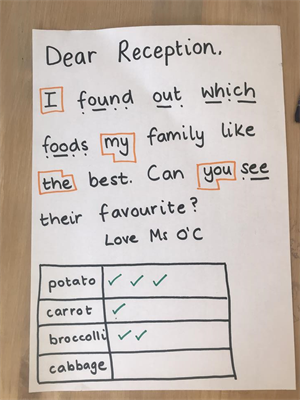 Dear Reception,
I found out which
foods my family like
the best. Can you see
their favourite?
Love Ms O'C
potato ✓ ✓ ✓
carrot ✓
broccolli ✓ ✓
cabbage